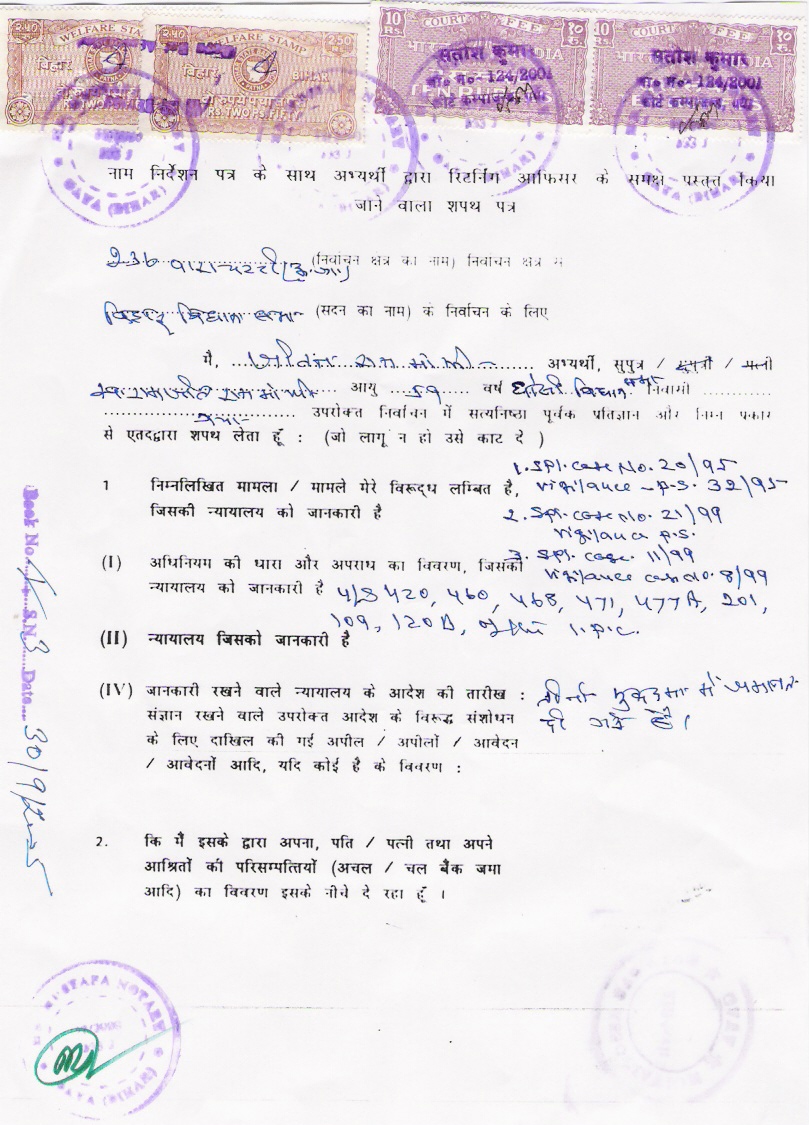 WELFARE STAMP
बिहार
BIHAR
2.50
RS. TWO PS. FIFTY
10 COURT FEE १०
Rs. रु.
भारत INDIA
TEN RUPEES
सतोश कुमार
ला० न०-124/2001
कोर्ट कम्पाउन्ड, गया
GAYA (BIHAR)
नाम निर्देशन पत्र के साथ अभ्यर्थी द्वारा रिटर्निंग आफिसर के समक्ष प्रस्तुत किया
जाने वाला शपथ पत्र
236 बाराचट्टी (अ.जा.) (निर्वाचन क्षेत्र का नाम) निर्वाचन क्षेत्र से
बिहार विधान सभा (सदन का नाम) के निर्वाचन के लिए
मैं, जीतन राम मांझी अभ्यर्थी, सुपुत्र / सुपुत्री / पत्नी
स्व. रामजीत राम मांझी आयु 59 वर्ष निवासी
गया उपरोक्त निर्वाचन में सत्यनिष्ठा पूर्वक प्रतिज्ञान और निम्न प्रकार
से एतदद्वारा शपथ लेता हूँ : (जो लागू न हो उसे काट दे )
1 निम्नलिखित मामला / मामले मेरे विरूद्ध लम्बित है,
जिसकी न्यायालय को जानकारी है
1. Spl. case No. 20/95
vigilance - p.s. 32/95
2. Spl. case No. 21/99
vigilance p.s.
3. Spl. case. 11/99
vigilance case no. 8/99
(I) अधिनियम की धारा और अपराध का विवरण, जिसकी
न्यायालय को जानकारी है
u/s 420, 460, 468, 471, 477A, 201,
109, 120B, of the I.P.C.
(II) न्यायालय जिसको जानकारी है
(IV) जानकारी रखने वाले न्यायालय के आदेश की तारीख :
संज्ञान रखने वाले उपरोक्त आदेश के विरूद्ध संशोधन
के लिए दाखिल की गई अपील / अपीलों / आवेदन
/ आवेदनों आदि, यदि कोई है के विवरण :
तीनों मुकदमा में जमानत
दी गई है।
2. कि मैं इसके द्वारा अपना, पति / पत्नी तथा अपने
आश्रितों की परिसम्पत्तियों (अचल / चल बैंक जमा
आदि) का विवरण इसके नीचे दे रहा हूँ ।
Book No. S.N. 3 Date 30/9/2005
MUSTAFA NOTARY
GAYA (BIHAR)